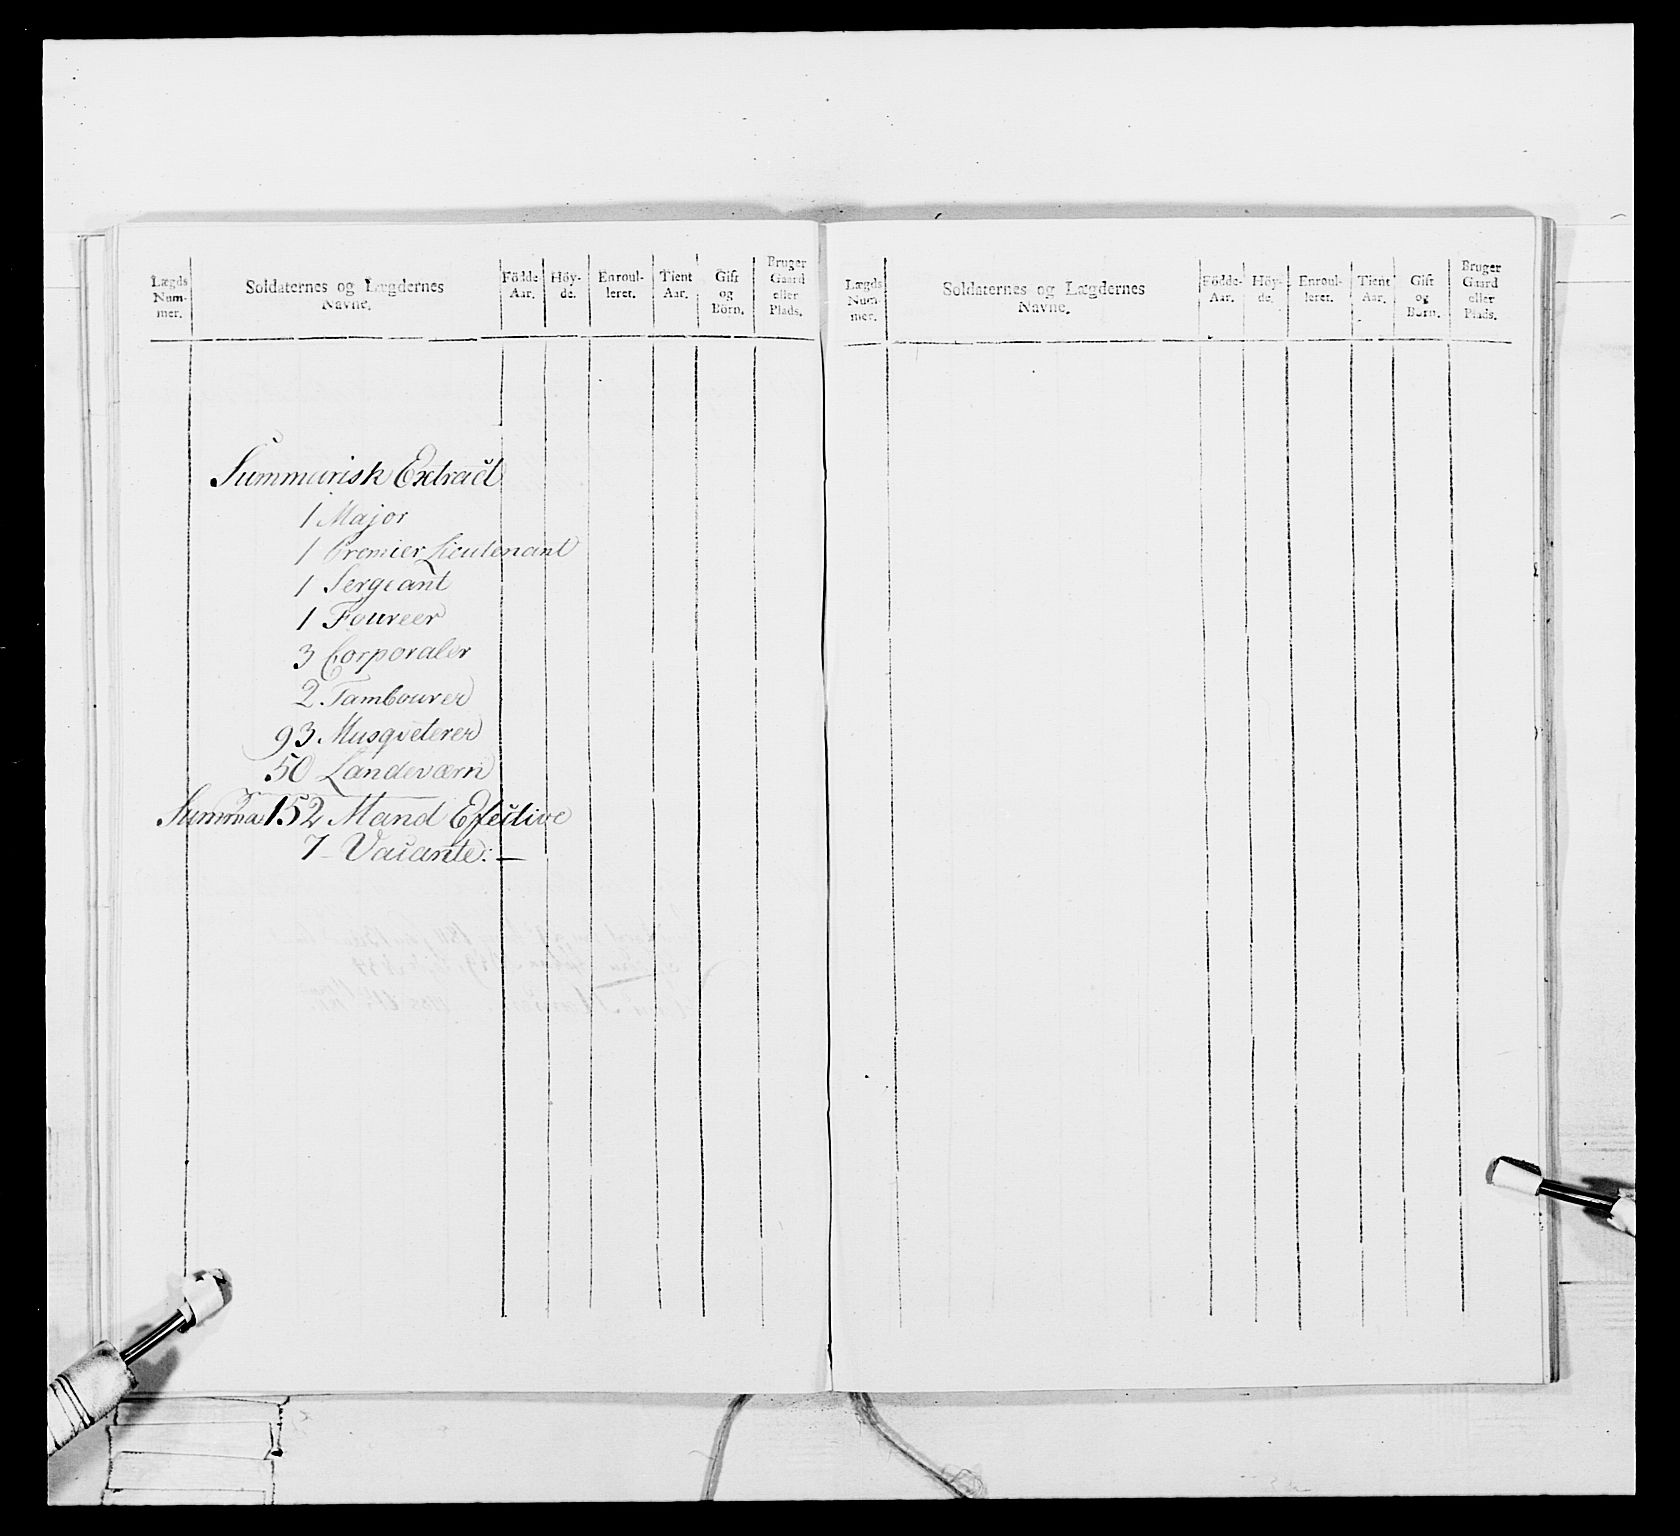 Lægds Num- mer.
Soldaternes og Lægdernes Navne.
Födde- Aar.
Höy- de.
Enroul- leret.
Tient Aar.
Gift og Börn.
Bruger Gaard eller Plads.
Summarisk Extract
1 Major
1 Premier Lieutenant
1 Sergeant
1 Foureer
3 Corporaler
2 Tambourer
93 Musqveterer
50 Landeværn
Summa 152 Mand Efective
7 - Vacante: -
Lægds Num- mer.
Soldaternes og Lægdernes Navne.
Födde- Aar.
Höy- de.
Enroul- leret.
Tient Aar.
Gift og Börn.
Bruger Gaard eller Plads.